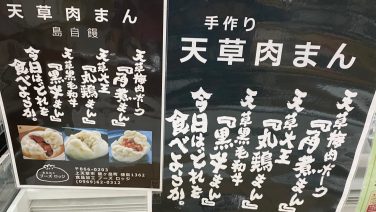 天草肉まん
島自慢
天草梅肉ポーク
『角煮まん』
天草大王
『丸鶏まん』
天草黒毛和牛
『黒牛まん』
今日はどれを
食べようか。
フーズ ロッジ
手作り
天草肉まん
天草梅肉ポーク
『角煮まん』
天草大王
『丸鶏まん』
天草黒毛和牛
『黒牛まん』
今日はどれを
食べようか。